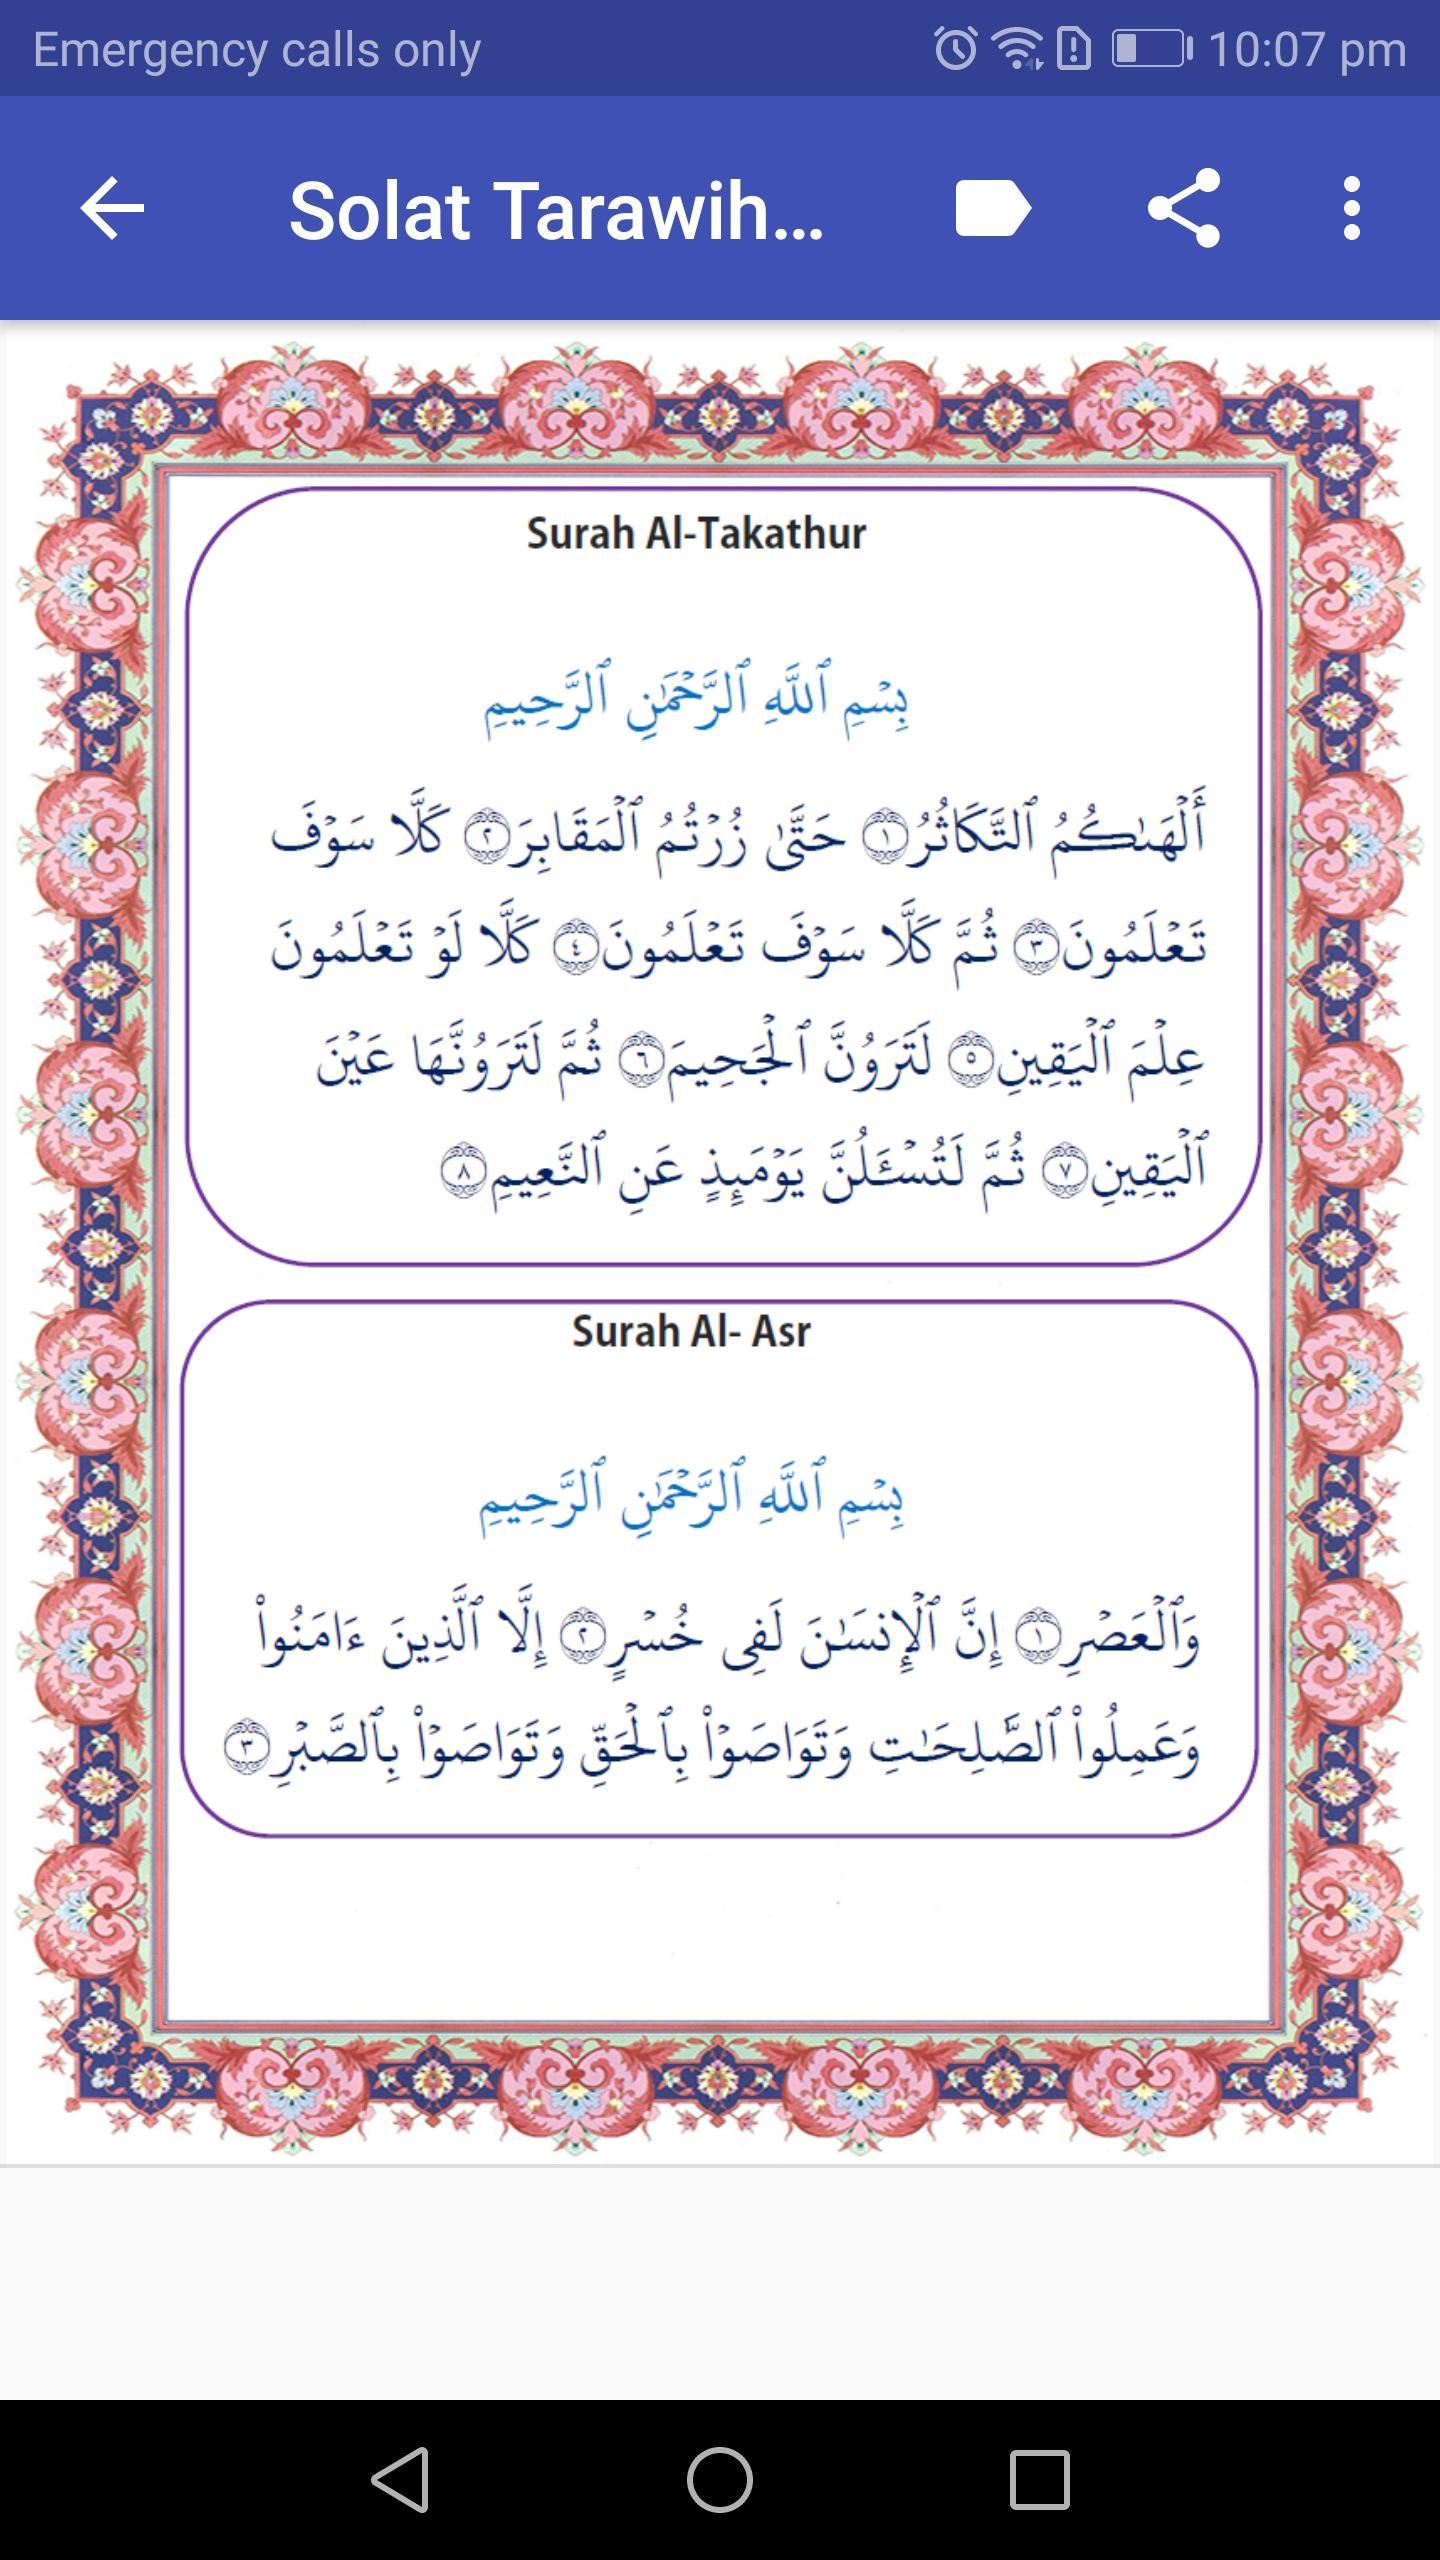 Emergency calls only 10:07 pm
Solat Tarawih...
Surah Al-Takathur
بِسۡمِ ٱللَّهِ ٱلرَّحۡمَٰنِ ٱلرَّحِيمِ
أَلۡهَىٰكُمُ ٱلتَّكَاثُرُ ١ حَتَّىٰ زُرۡتُمُ ٱلۡمَقَابِرَ ٢ كَلَّا سَوۡفَ
تَعۡلَمُونَ ٣ ثُمَّ كَلَّا سَوۡفَ تَعۡلَمُونَ ٤ كَلَّا لَوۡ تَعۡلَمُونَ
عِلۡمَ ٱلۡيَقِينِ ٥ لَتَرَوُنَّ ٱلۡجَحِيمَ ٦ ثُمَّ لَتَرَوُنَّهَا عَيۡنَ
ٱلۡيَقِينِ ٧ ثُمَّ لَتُسۡـَٔلُنَّ يَوۡمَئِذٍ عَنِ ٱلنَّعِيمِ ٨
Surah Al- Asr
بِسۡمِ ٱللَّهِ ٱلرَّحۡمَٰنِ ٱلرَّحِيمِ
وَٱلۡعَصۡرِ ١ إِنَّ ٱلۡإِنسَٰنَ لَفِى خُسۡرٍ ٢ إِلَّا ٱلَّذِينَ ءَامَنُواْ
وَعَمِلُواْ ٱلصَّٰلِحَٰتِ وَتَوَاصَوۡاْ بِٱلۡحَقِّ وَتَوَاصَوۡاْ بِٱلصَّبۡرِ ٣